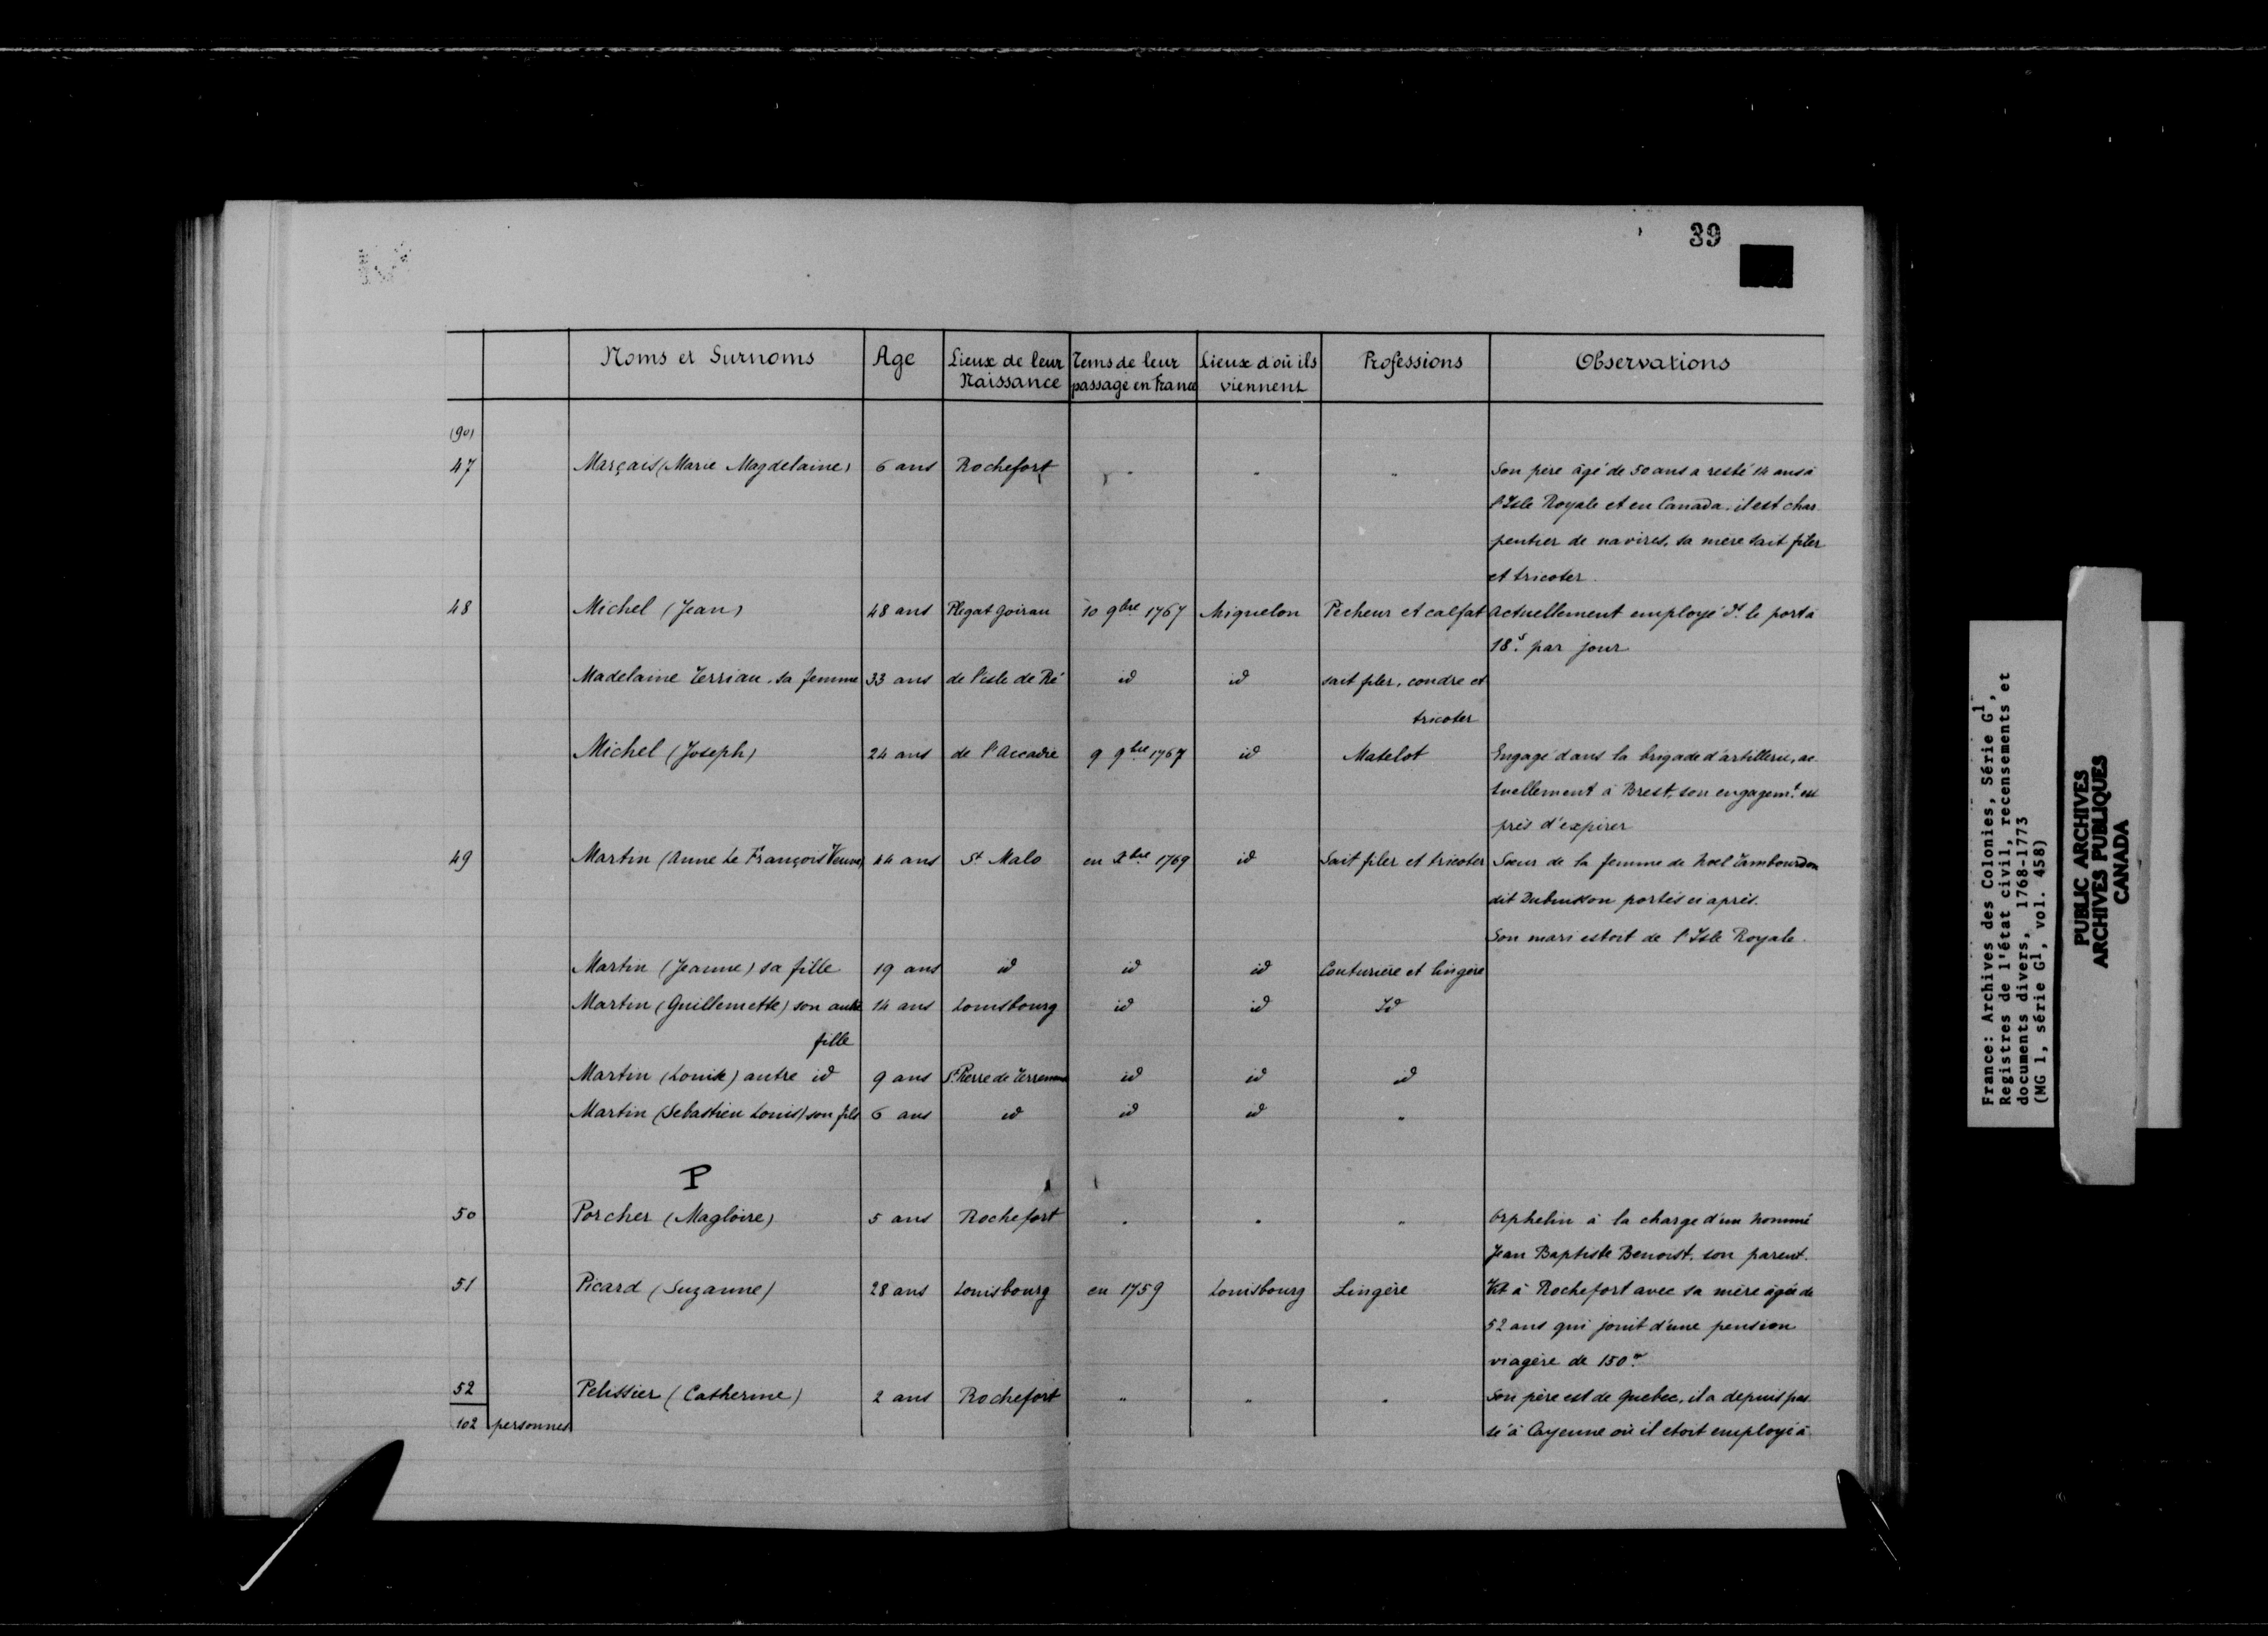 39
Noms et Surnoms | Age | Lieux de leur Naissance | Tems de leur passage en France | Lieux d'où ils viennent | Professions | Observations
(90)
47 | Marçais (Marie Magdelaine) | 6 ans | Rochefort | " | " | " | Son père âgé de 50 ans a resté 14 ans à
l'Isle Royale et en Canada. il est char-
pentier de navires, sa mère sait filer
et tricoter.
48 | Michel (Jean) | 48 ans | Plegat Goirau | 10 9bre 1767 | Miquelon | Pecheur et calfat | Actuellement employé dt. le port à
18s. par jour
Madelaine Terriau, sa femme | 33 ans | de l'isle de Ré | id | id | sait filer, coudre et
tricoter
Michel (Joseph) | 24 ans | de l'Accadie | 9 9bre 1767 | id | Matelot | Engagé dans la brigade d'artillerie, ac-
tuellement à Brest, son engagemt. est
près d'expirer
49 | Martin (Anne Le François Veuve) | 44 ans | St Malo | en Xbre 1769 | id | Sait filer et tricoter | Sœur de la femme de Noel Tambourdon
dit Dubuisson portés ci après.
Son mari estoit de l'Isle Royale.
Martin (Jeanne) sa fille | 19 ans | id | id | id | Couturière et lingère
Martin (Guillemette) son autre | 14 ans | Louisbourg | id | id | Id
fille
Martin (Louise) autre id | 9 ans | St. Pierre de Terreneuve | id | id | id
Martin (Sebastien Louis) son fils | 6 ans | id | id | id | "
P
50 | Porcher (Magloire) | 5 ans | Rochefort | " | " | " | Orphelin à la charge d'un nommé
Jean Baptiste Benoist, son parent.
51 | Picard (Suzanne) | 28 ans | Louisbourg | en 1759 | Louisbourg | Lingère | Vit à Rochefort avec sa mère âgée de
52 ans qui jouit d'une pension
viagère de 150
52 | Pelissier (Catherine) | 2 ans | Rochefort | " | " | " | Son père est de Quebec, il a depuis pas-
102 personnes | sé à Cayenne où il etoit employé à
France: Archives des Colonies, Série G1,
Registres de l'état civil, recensements et
documents divers, 1768-1773
(MG 1, série G1, vol. 458)
PUBLIC ARCHIVES
ARCHIVES PUBLIQUES
CANADA